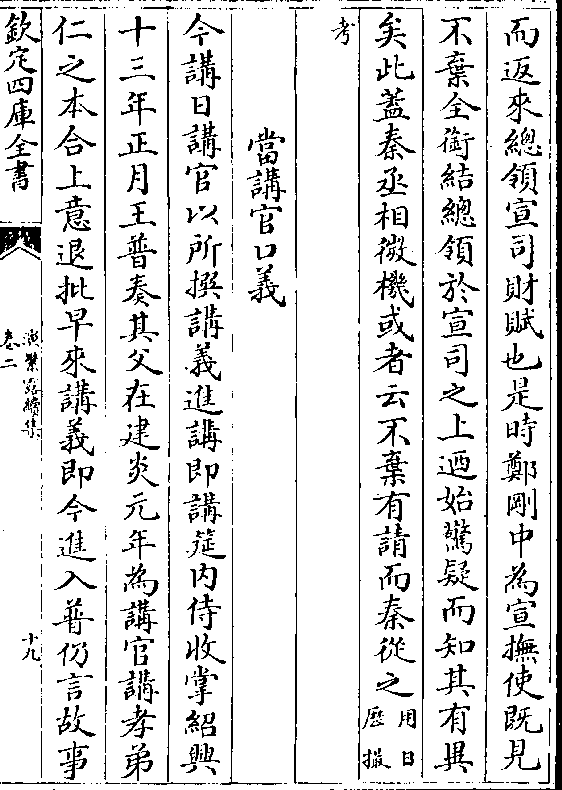 而返來總領宣司財賦也是時鄭剛中為宣撫使既見
不棄全銜結總領於宣司之上廼始驚疑而知其有異
矣此蓋秦丞相微機或者云不棄有請而秦從之用日歷撮
考
當講官口義
今講日講官以所撰講義進講即講筵内侍收掌紹興
十三年正月王普奏其父在建炎元年為講官講孝弟
仁之本合上意退批早來講義即今進入普仍言故事
欽定四庫全書
演繁露續集
卷二
十九